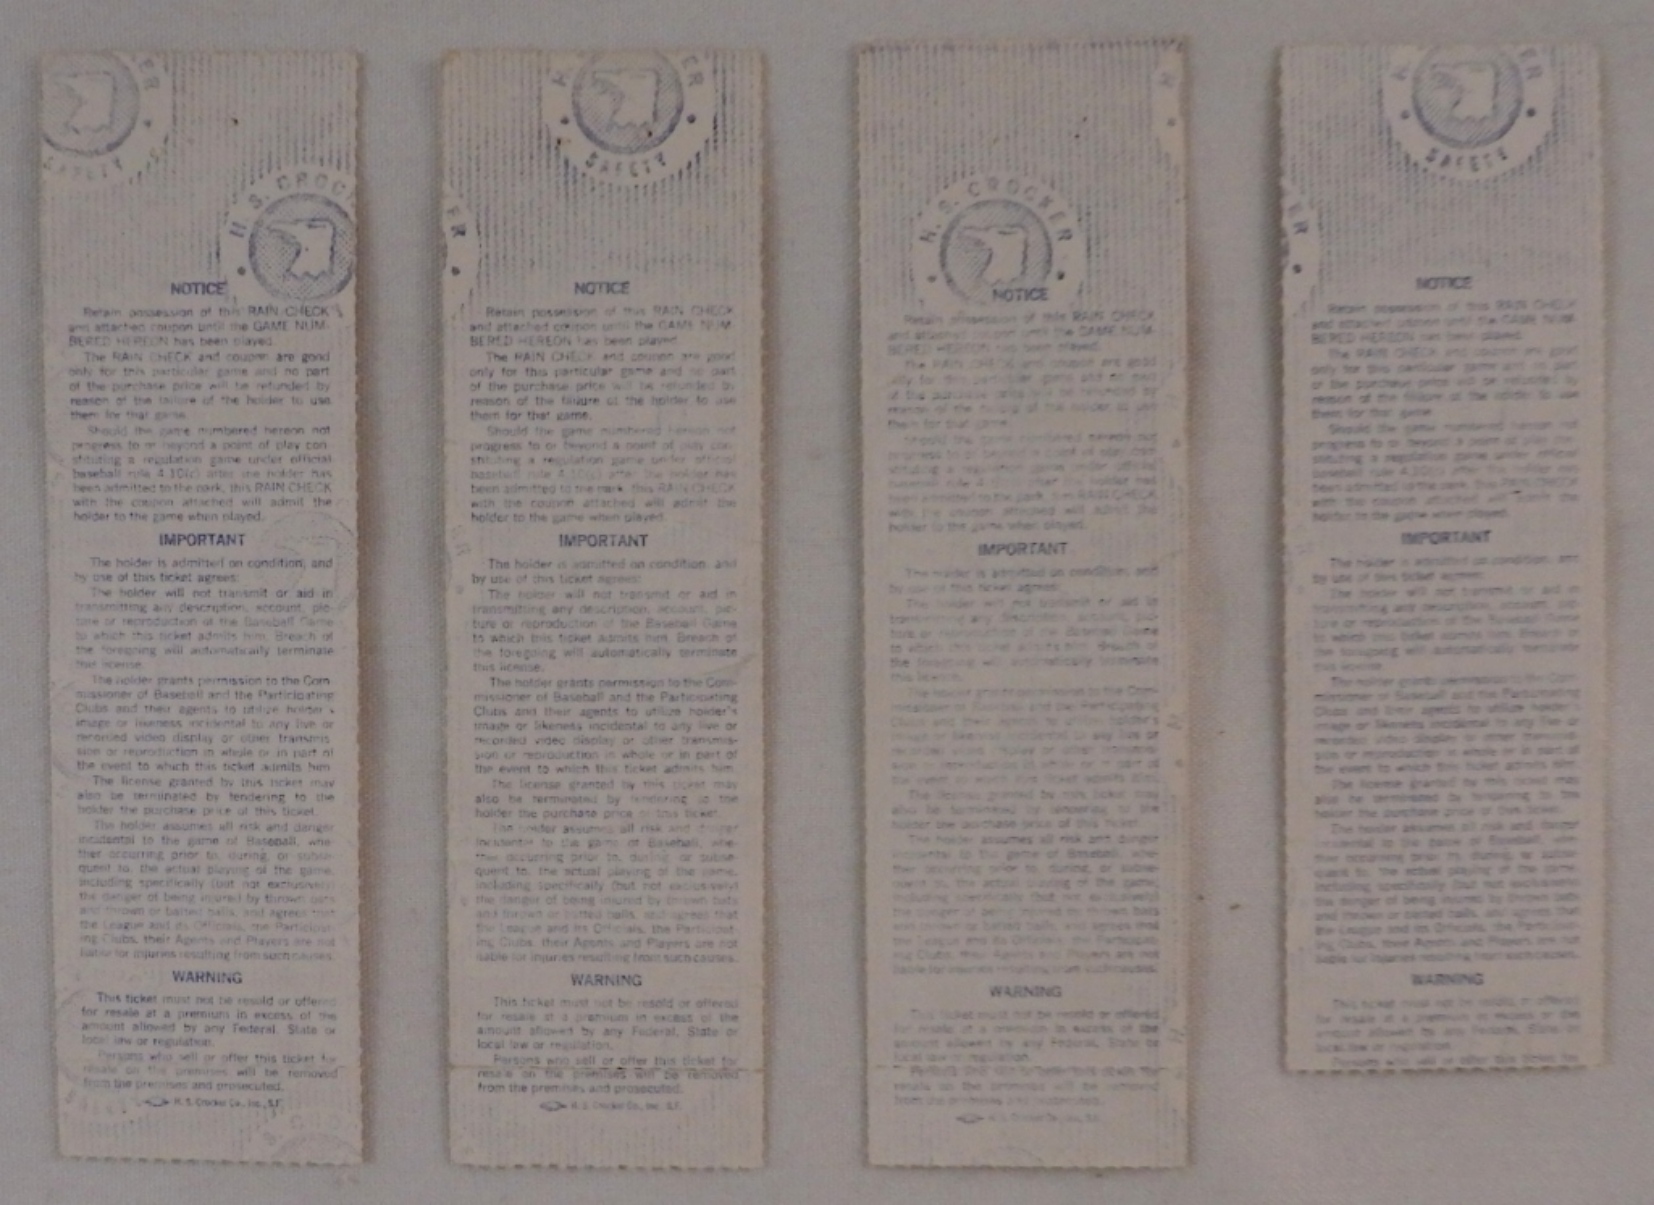 ER
SAFETY
H. S. CROCK
NOTICE
Retain possession of this RAIN CHECK
and attached coupon until the GAME NUM-
BERED HEREON has been played.
The RAIN CHECK and coupon are good
only for this particular game and no part
of the purchase price will be refunded by
reason of the failure of the holder to use
them for that game.
Should the game numbered hereon not
progress to or beyond a point of play con-
stituting a regulation game under official
baseball rule 4.10(c) after the holder has
been admitted to the park, this RAIN CHECK
with the coupon attached will admit the
holder to the game when played.
IMPORTANT
The holder is admitted on condition, and
by use of this ticket agrees:
The holder will not transmit or aid in
transmitting any description, account, pic-
ture or reproduction of the Baseball Game
to which this ticket admits him. Breach of
the foregoing will automatically terminate
this license.
The holder grants permission to the Com-
missioner of Baseball and the Participating
Clubs and their agents to utilize holder's
image or likeness incidental to any live or
recorded video display or other transmis-
sion or reproduction in whole or in part of
the event to which this ticket admits him.
The license granted by this ticket may
also be terminated by tendering to the
holder the purchase price of this ticket.
The holder assumes all risk and danger
incidental to the game of Baseball, whe-
ther occurring prior to, during, or subse-
quent to, the actual playing of the game,
including specifically (but not exclusively)
the danger of being injured by thrown bats
and thrown or batted balls, and agrees that
the League and its Officials, the Participat-
ing Clubs, their Agents and Players are not
liable for injuries resulting from such causes.
WARNING
This ticket must not be resold or offered
for resale at a premium in excess of the
amount allowed by any Federal, State or
local law or regulation.
Persons who sell or offer this ticket for
resale on the premises will be removed
from the premises and prosecuted.
H. S. Crocker Co., Inc., S.F.
ER
SAFETY
ER
NOTICE
Retain possession of this RAIN CHECK
and attached coupon until the GAME NUM-
BERED HEREON has been played.
The RAIN CHECK and coupon are good
only for this particular game and no part
of the purchase price will be refunded by
reason of the failure of the holder to use
them for that game.
Should the game numbered hereon not
progress to or beyond a point of play con-
stituting a regulation game under official
baseball rule 4.10(c) after the holder has
been admitted to the park, this RAIN CHECK
with the coupon attached will admit the
holder to the game when played.
IMPORTANT
The holder is admitted on condition, and
by use of this ticket agrees:
The holder will not transmit or aid in
transmitting any description, account, pic-
ture or reproduction of the Baseball Game
to which this ticket admits him. Breach of
the foregoing will automatically terminate
this license.
The holder grants permission to the Com-
missioner of Baseball and the Participating
Clubs and their agents to utilize holder's
image or likeness incidental to any live or
recorded video display or other transmis-
sion or reproduction in whole or in part of
the event to which this ticket admits him.
The license granted by this ticket may
also be terminated by tendering to the
holder the purchase price of this ticket.
The holder assumes all risk and danger
incidental to the game of Baseball, whe-
ther occurring prior to, during, or subse-
quent to, the actual playing of the game,
including specifically (but not exclusively)
the danger of being injured by thrown bats
and thrown or batted balls, and agrees that
the League and its Officials, the Participat-
ing Clubs, their Agents and Players are not
liable for injuries resulting from such causes.
WARNING
This ticket must not be resold or offered
for resale at a premium in excess of the
amount allowed by any Federal, State or
local law or regulation.
Persons who sell or offer this ticket for
resale on the premises will be removed
from the premises and prosecuted.
H. S. Crocker Co., Inc., S.F.
H. S. CROCKER
NOTICE
Retain possession of this RAIN CHECK
and attached coupon until the GAME NUM-
BERED HEREON has been played.
The RAIN CHECK and coupon are good
only for this particular game and no part
of the purchase price will be refunded by
reason of the failure of the holder to use
them for that game.
Should the game numbered hereon not
progress to or beyond a point of play con-
stituting a regulation game under official
baseball rule 4.10(c) after the holder has
been admitted to the park, this RAIN CHECK
with the coupon attached will admit the
holder to the game when played.
IMPORTANT
The holder is admitted on condition, and
by use of this ticket agrees:
The holder will not transmit or aid in
transmitting any description, account, pic-
ture or reproduction of the Baseball Game
to which this ticket admits him. Breach of
the foregoing will automatically terminate
this license.
The holder grants permission to the Com-
missioner of Baseball and the Participating
Clubs and their agents to utilize holder's
image or likeness incidental to any live or
recorded video display or other transmis-
sion or reproduction in whole or in part of
the event to which this ticket admits him.
The license granted by this ticket may
also be terminated by tendering to the
holder the purchase price of this ticket.
The holder assumes all risk and danger
incidental to the game of Baseball, whe-
ther occurring prior to, during, or subse-
quent to, the actual playing of the game,
including specifically (but not exclusively)
the danger of being injured by thrown bats
and thrown or batted balls, and agrees that
the League and its Officials, the Participat-
ing Clubs, their Agents and Players are not
liable for injuries resulting from such causes.
WARNING
This ticket must not be resold or offered
for resale at a premium in excess of the
amount allowed by any Federal, State or
local law or regulation.
Persons who sell or offer this ticket for
resale on the premises will be removed
from the premises and prosecuted.
H. S. Crocker Co., Inc., S.F.
ER
SAFETY
ER
NOTICE
Retain possession of this RAIN CHECK
and attached coupon until the GAME NUM-
BERED HEREON has been played.
The RAIN CHECK and coupon are good
only for this particular game and no part
of the purchase price will be refunded by
reason of the failure of the holder to use
them for that game.
Should the game numbered hereon not
progress to or beyond a point of play con-
stituting a regulation game under official
baseball rule 4.10(c) after the holder has
been admitted to the park, this RAIN CHECK
with the coupon attached will admit the
holder to the game when played.
IMPORTANT
The holder is admitted on condition, and
by use of this ticket agrees:
The holder will not transmit or aid in
transmitting any description, account, pic-
ture or reproduction of the Baseball Game
to which this ticket admits him. Breach of
the foregoing will automatically terminate
this license.
The holder grants permission to the Com-
missioner of Baseball and the Participating
Clubs and their agents to utilize holder's
image or likeness incidental to any live or
recorded video display or other transmis-
sion or reproduction in whole or in part of
the event to which this ticket admits him.
The license granted by this ticket may
also be terminated by tendering to the
holder the purchase price of this ticket.
The holder assumes all risk and danger
incidental to the game of Baseball, whe-
ther occurring prior to, during, or subse-
quent to, the actual playing of the game,
including specifically (but not exclusively)
the danger of being injured by thrown bats
and thrown or batted balls, and agrees that
the League and its Officials, the Participat-
ing Clubs, their Agents and Players are not
liable for injuries resulting from such causes.
WARNING
This ticket must not be resold or offered
for resale at a premium in excess of the
amount allowed by any Federal, State or
local law or regulation.
Persons who sell or offer this ticket for